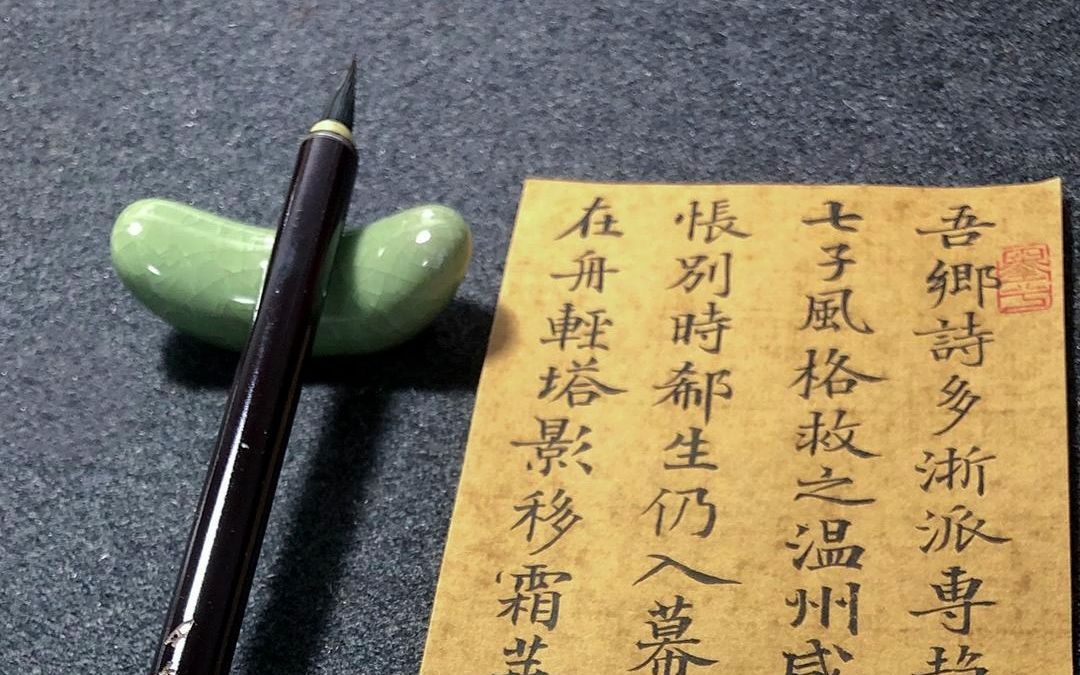 吾鄉詩多浙派専
七子風格救之温州咸
悵別時郗生仍入幕
在舟輕塔影移霜